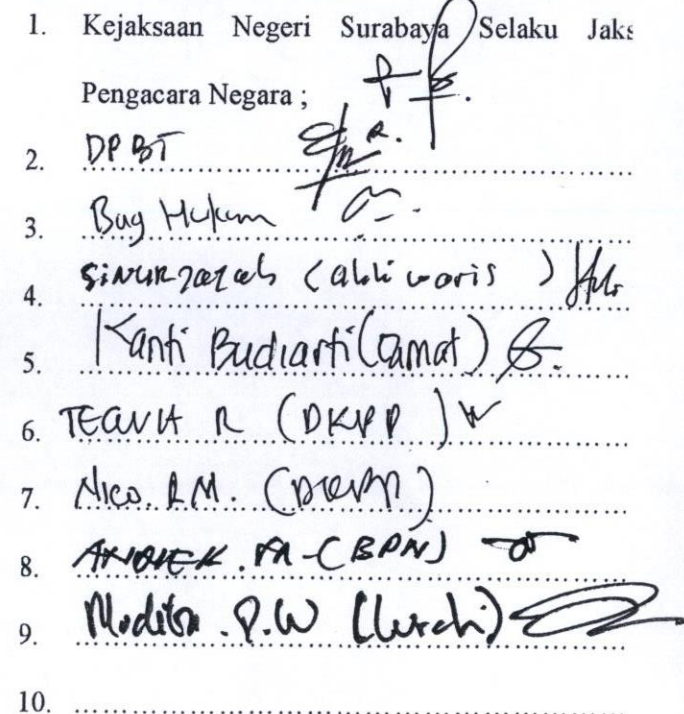 1. Kejaksaan Negeri Surabaya Selaku Jaks
Pengacara Negara ;
2. DPBT
3. Bag Hukum
4. (ahli waris)
5. Kanti Budiarti (Camat)
6. TEGUH R (DKPP)
7. Nico. R.M.
8. (BPN)
9. P.W (Lurah)
10.